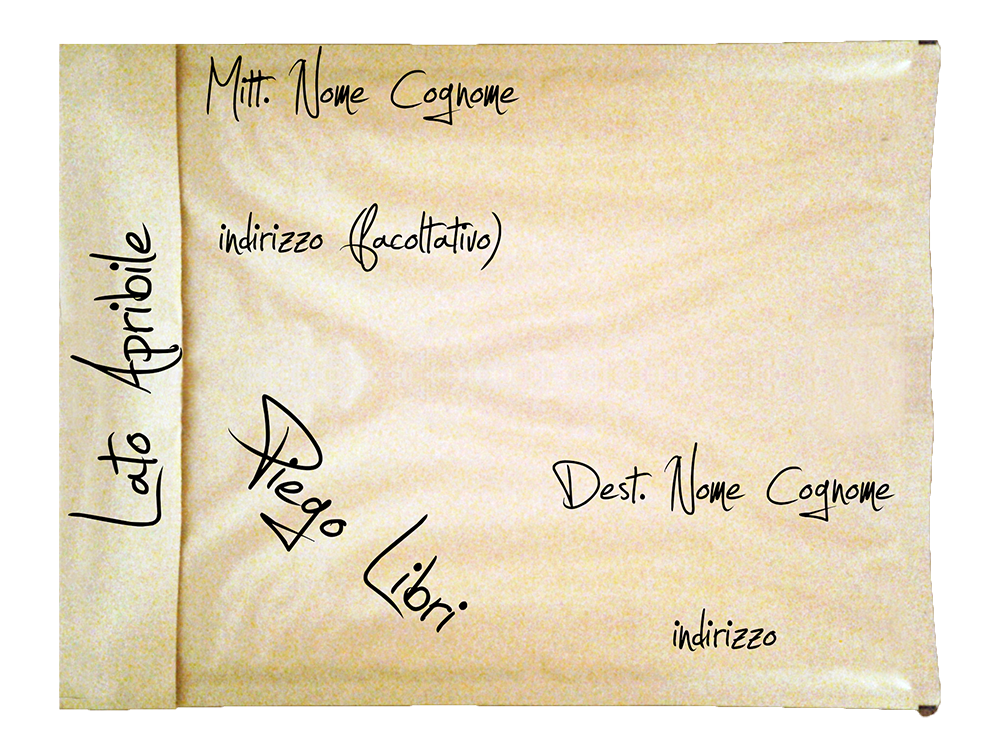 Mitt. Nome Cognome
indirizzo (facoltativo)
Lato Apribile
Piego Libri
Dest. Nome Cognome
indirizzo